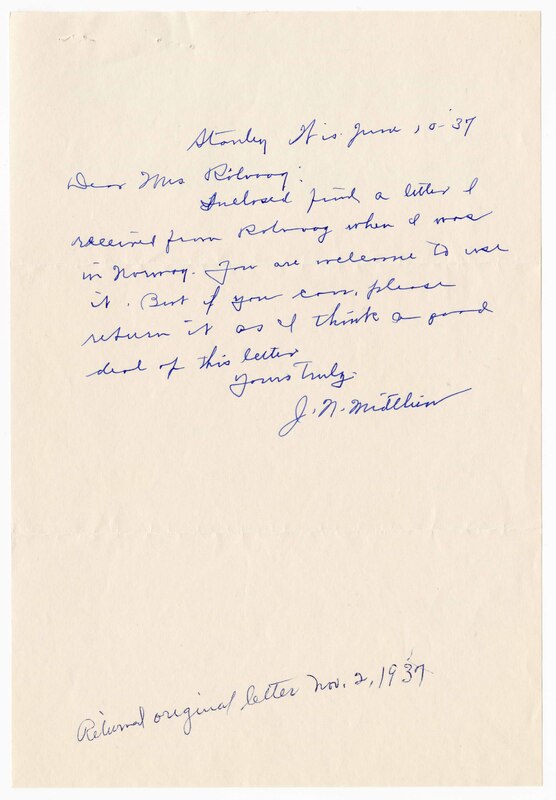 Stanley Wis. June 10-37
Dear Mrs Rölvaag:
Inclosed find a letter I
received from Rolvaag when I was
in Norway. You are welcome to use
it. But if you can, please
return it as I think a good
deal of this letter
Yours Truly.
J. N. Midtlien
Returned original letter Nov. 2, 1937